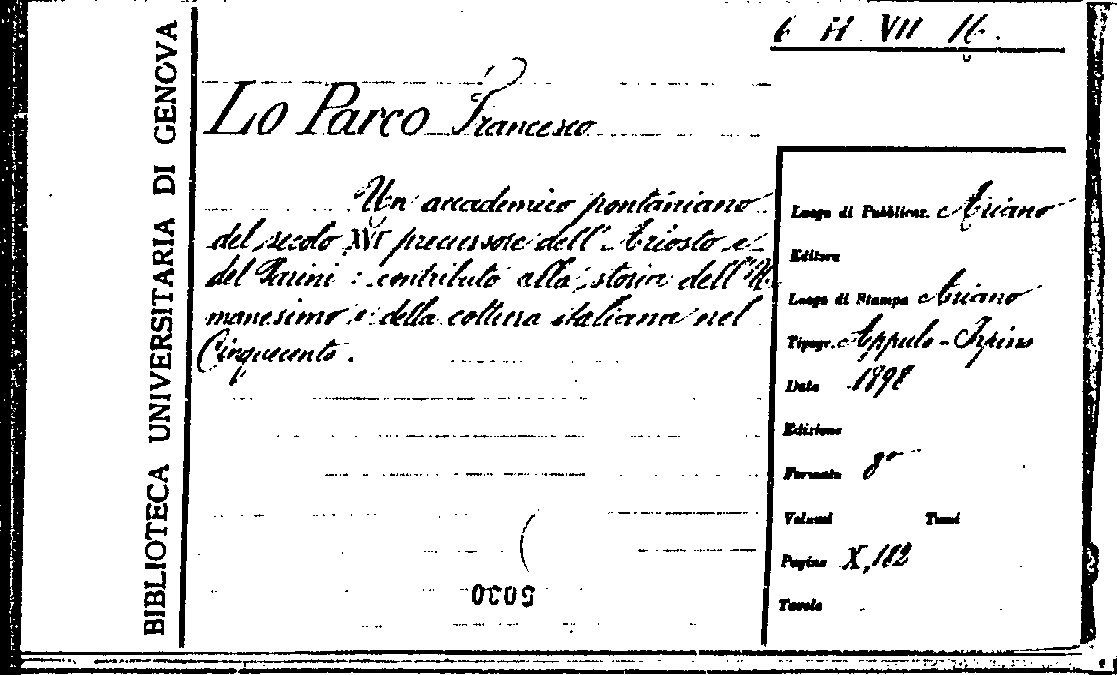 BIBLIOTECA UNIVERSITARIA DI GENOVA
6 H VII 16.
Lo Parco Francesco
Un accademico pontaniano
del secolo XVI precursore dell'Ariosto e
del Parini : contributo alla storia dell'U-
manesimo e della coltura italiana nel
Cinquecento.
Luogo di Pubblicaz. Ariano
Editore
Luogo di Stampa Ariano
Tipogr. Appulo-Irpino
Data 1898
Edizione
Formato 8º
Volumi Tomi
Pagine X, 182
Tavole
5030